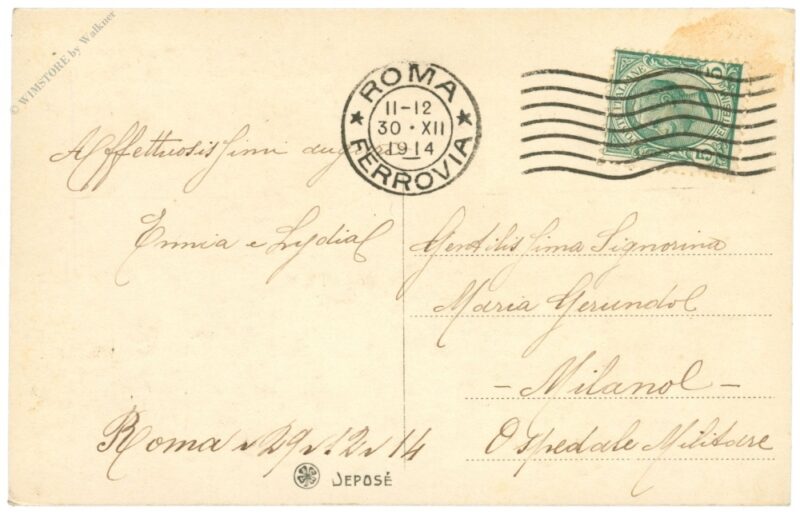 © WIMSTORE by Walkner
ROMA
11-12
30 · XII
1914
FERROVIA
Affettuosissimi
Ennia e Lydia
Roma 29 12 14
DEPOSÉ
Gentilissima Signorina
Maria Gerundo
- Milano -
Ospedale Militare